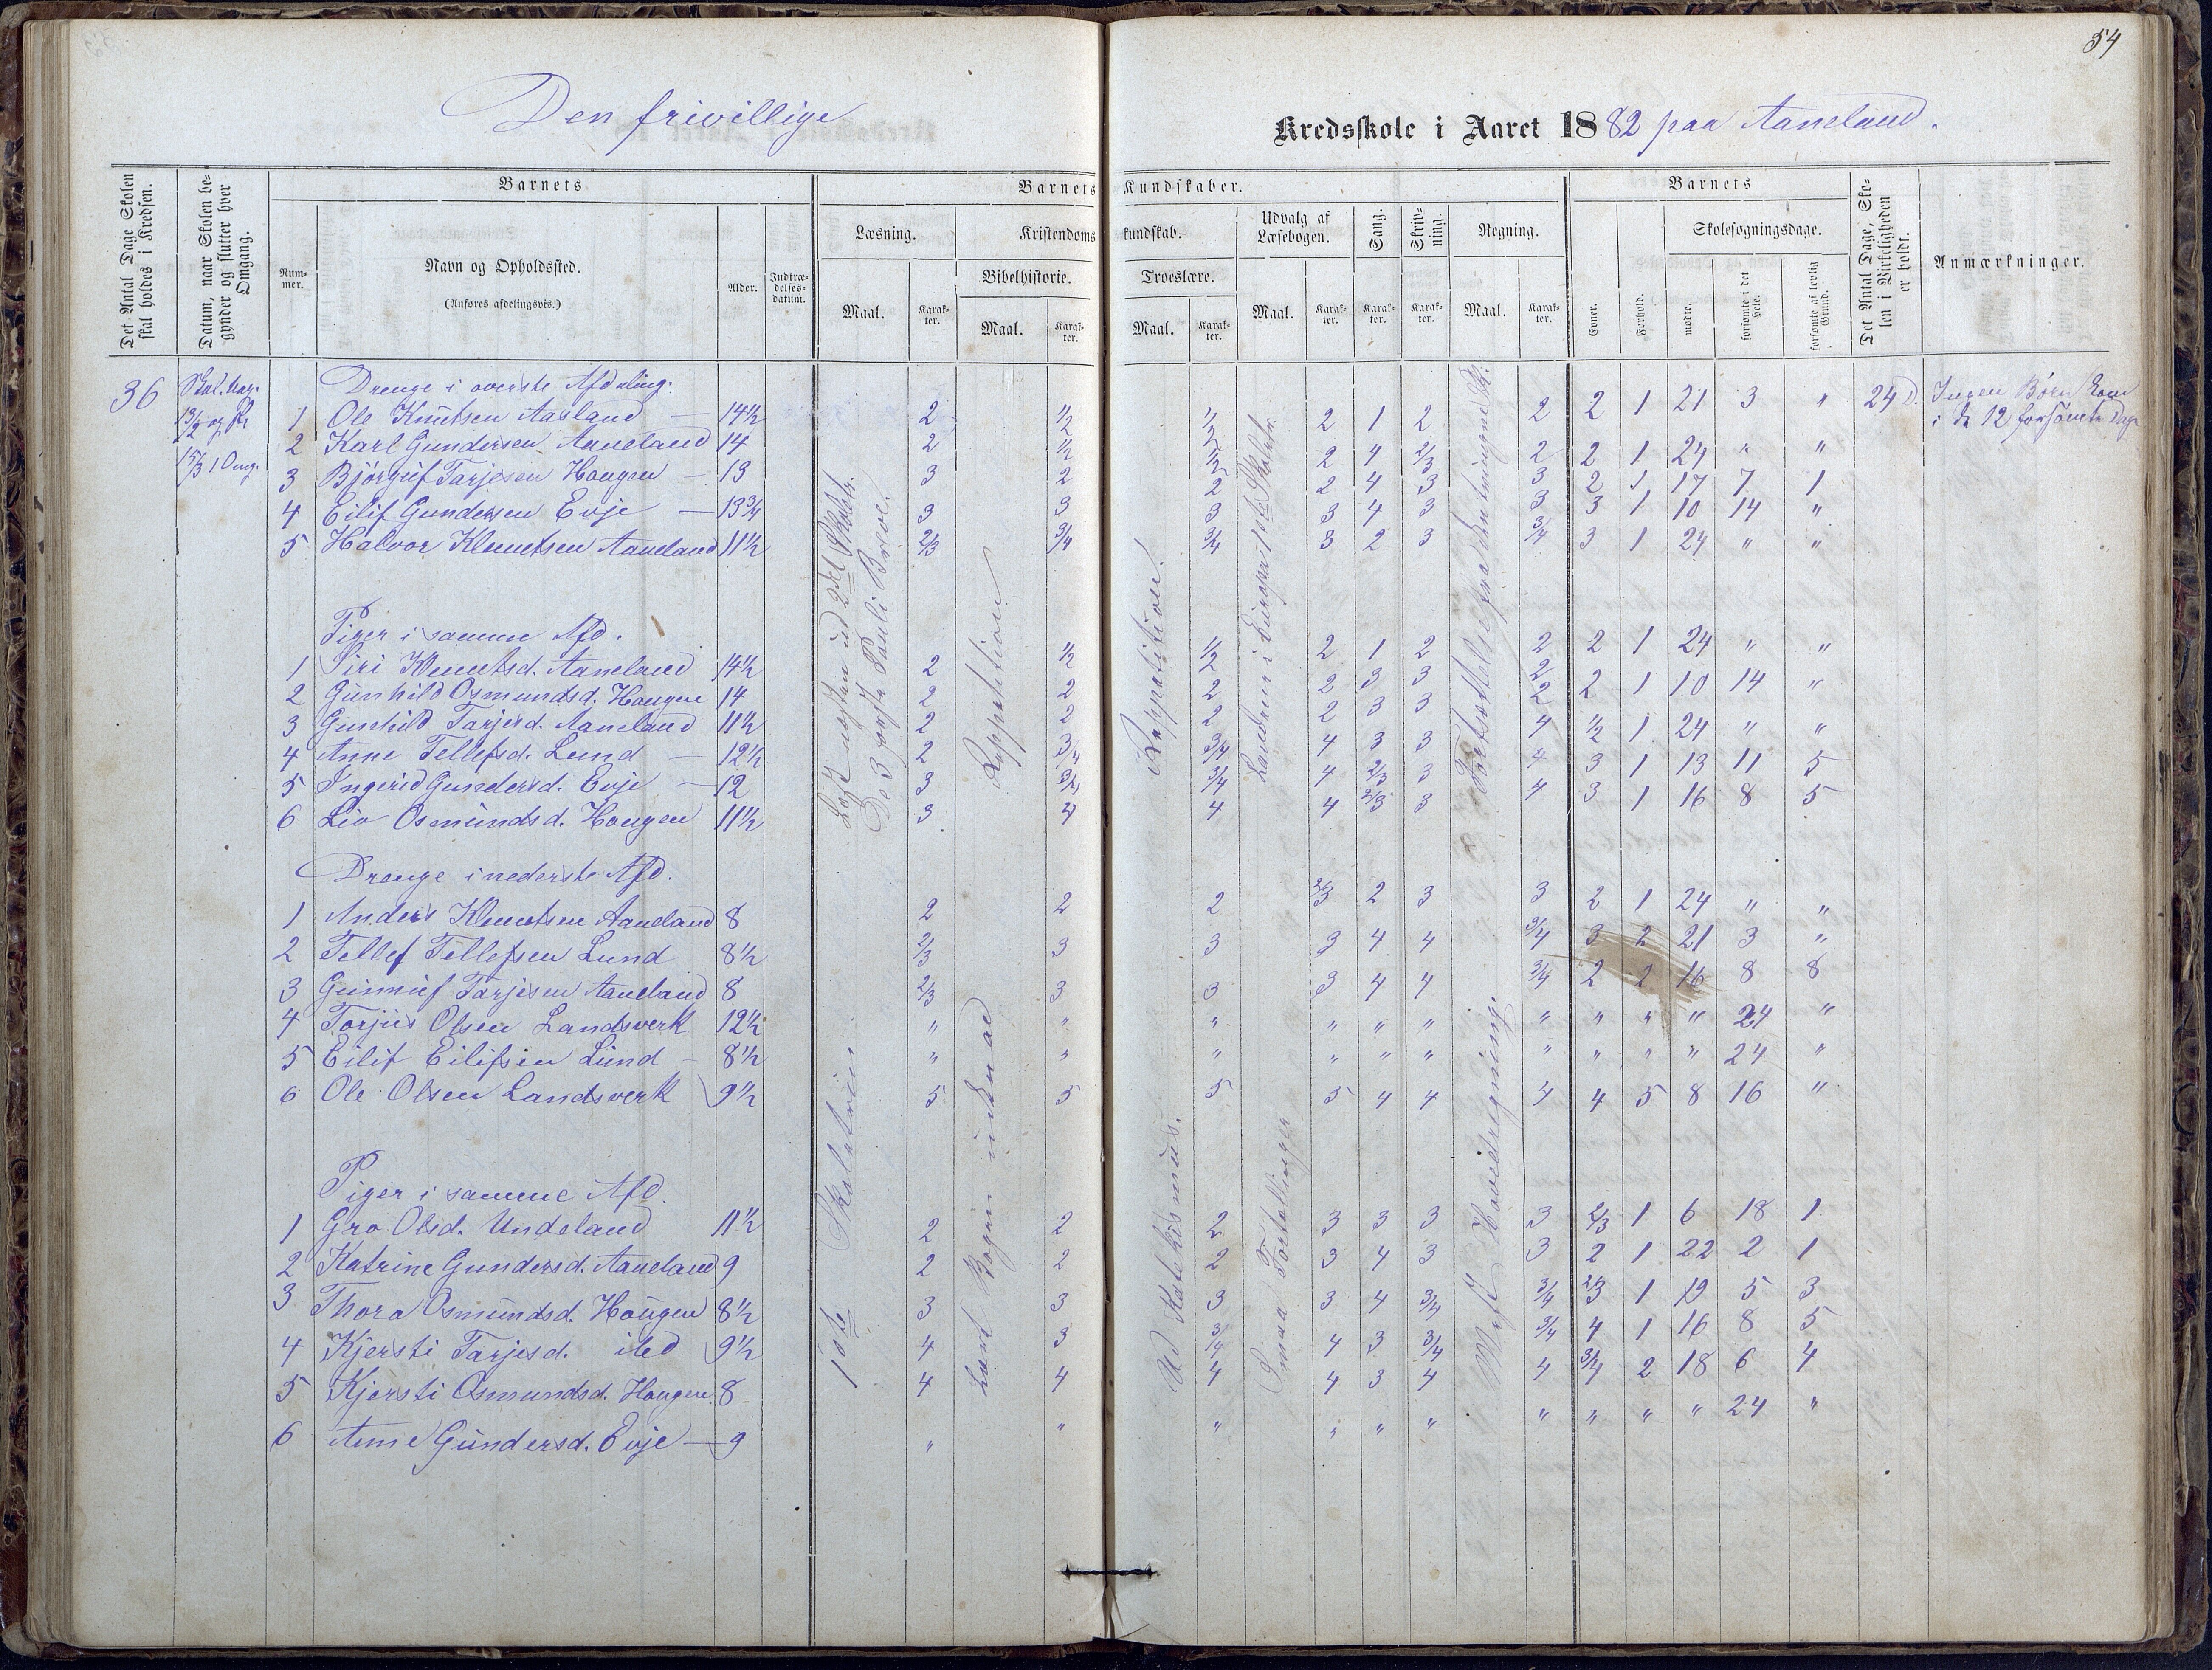 54
Den frivillige Kredsskole i Aaret 1882 paa Aaneland.
Det Antal Dage Skolen skal holdes i Kredsen.
Datum, naar Skolen begynder og slutter hver Omgang.
Barnets
Nummer.
Navn og Opholdssted.
(Anføres afdelingsvis.)
Alder.
Indtrædelsesdatum.
Barnets Kundskaber.
Læsning.
Maal.
Karakter.
Kristendomskundskab.
Bibelhistorie.
Maal.
Karakter.
Troeslære.
Maal.
Karakter.
Udvalg af Læsebogen.
Maal.
Karakter.
Sang.
Karakter.
Skrivning.
Karakter.
Regning.
Maal.
Karakter.
Barnets
Evner.
Forhold.
Skolesøgningsdage.
mødte.
forsømte i det Hele.
forsømte af lovlig Grund.
Det Antal Dage, Skolen i Virkeligheden er holdt.
Anmærkninger.
36
24 D.
Ingen Børn kom
i de 12 forsömte Dage
Drenge i øverste Afdeling.
1 Ole Knutsen Aasland — 14½ 2 ½ ½ 2 1 2 2 2 1 21 3 "
2 Karl Gundersen Aaneland 14 2 ½ ½ 2 4 2/3 2 2 1 24 " "
3 Björgüf Tarjesen Haugen — 13 3 2 2 2 4 3 3 2 1 17 7 1
4 Eilif Gundersen Evje — 13¾ 3 3 3 3 4 3 3 3 1 10 14 "
5 Halvor Klemetsen Aaneland 11½ 2/3 3/4 3/4 3 2 3 3/4 3 1 24 " "
Piger i samme Afd.
1 Siri Klemetsd. Aaneland 14½ 2 ½ ½ 2 1 2 2 2 1 24 " "
2 Günhild Osmundsd. Haugen 14 2 2 2 2 3 3 2 2 1 10 14 "
3 Gunhild Tarjesd. Aaneland 11½ 2 2 2 2 3 3 2 ½ 1 24 " "
4 Anne Tellefsd. Lund — 12½ 2 3/4 3/4 4 3 3 4 3 1 13 11 5
5 Ingerid Gundersd. Evje — 12 3 3/4 3/4 4 2/3 3 4 3 1 16 8 5
6 Liv Osmündsd. Haugen 11½ 3 4 4 4 2/3 3 4
Drenge i nederste Afd.
1 Anders Klemetsen Aaneland 8 2 2 2 2/3 2 3 3 2 1 24 " "
2 Tellef Tellefsen Lund 8½ 2/3 3 3 3 4 4 3/4 3 2 21 3 "
3 Günnüf Tarjesen Aaneland 8 2/3 3 3 3 4 4 3/4 2 2 16 8 8
4 Torjüs Olsen Landsverk 12½ " " " " " " " " " " 24 "
5 Eilif Eilifsen Lünd — 8½ " " " " " " " " " " 24 "
6 Ole Olsen Landsverk 9½ 5 5 5 5 4 4 4 4 5 8 16 "
Piger i samme Afd.
1 Gro Olsd. Undeland 11½ 2 2 2 3 3 3 3 2/3 1 6 18 1
2 Katrine Gundersd. Aaneland 9 2 2 2 3 4 3 3 2 1 22 2 1
3 Thora Osmündsd. Haügen 8½ 3 3 3 3 4 3/4 3/4 2/3 1 19 5 3
4 Kjersti Tarjesd. ibd 9½ 4 3 3/4 4 3 3/4 3/4 4 1 16 8 5
5 Kjersti Osmundsd. Haugen 8 4 4 4 4 3 4 4 3/4 2 18 6 4
6 Anne Gündersd. Evje — 9 " " " " " " " " " " 24 "
Repetition
Repetition.
1ste Skoletrin
Ud Katekismus.
Smaa Fortællinger
Hovedregning